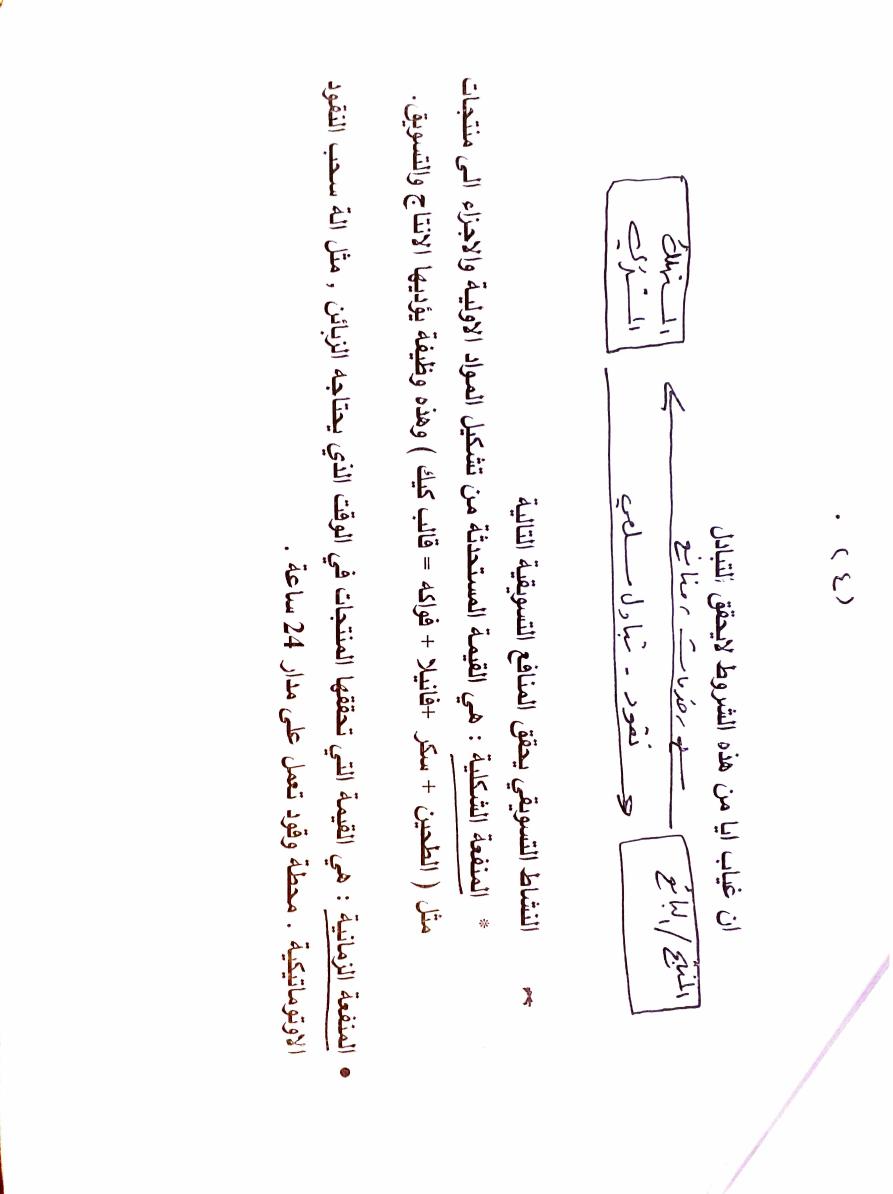 (٤) .
ان غياب ايا من هذه الشروط لايحقق التبادل
المنتج / البائع
سلع، خدمات، منافع
نقود - تبادل سلعي
المستهلك
المشتري
النشاط التسويقي يحقق المنافع التسويقية التالية
* المنفعة الشكلية : هي القيمة المستحدثة من تشكيل المواد الاولية والاجزاء الى منتجات
مثل ( الطحين + سكر +فانيلا + فواكه = قالب كيك ) وهذه وظيفة يؤديها الانتاج والتسويق.
• المنفعة الزمانية : هي القيمة التي تحققها المنتجات في الوقت الذي يحتاجه الزبائن , مثل الة سحب النقود
الاوتوماتيكية . محطة وقود تعمل على مدار 24 ساعة .